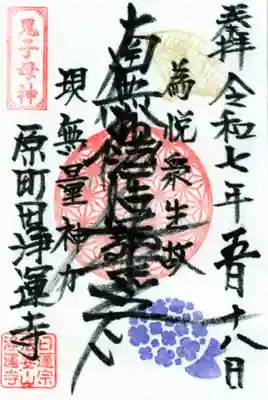 奉拝 令和七年五月十八日
為悦衆生故
南無妙法蓮華経
現無量神力
鬼子母神
原町田浄運寺
日蓮宗
浄運寺